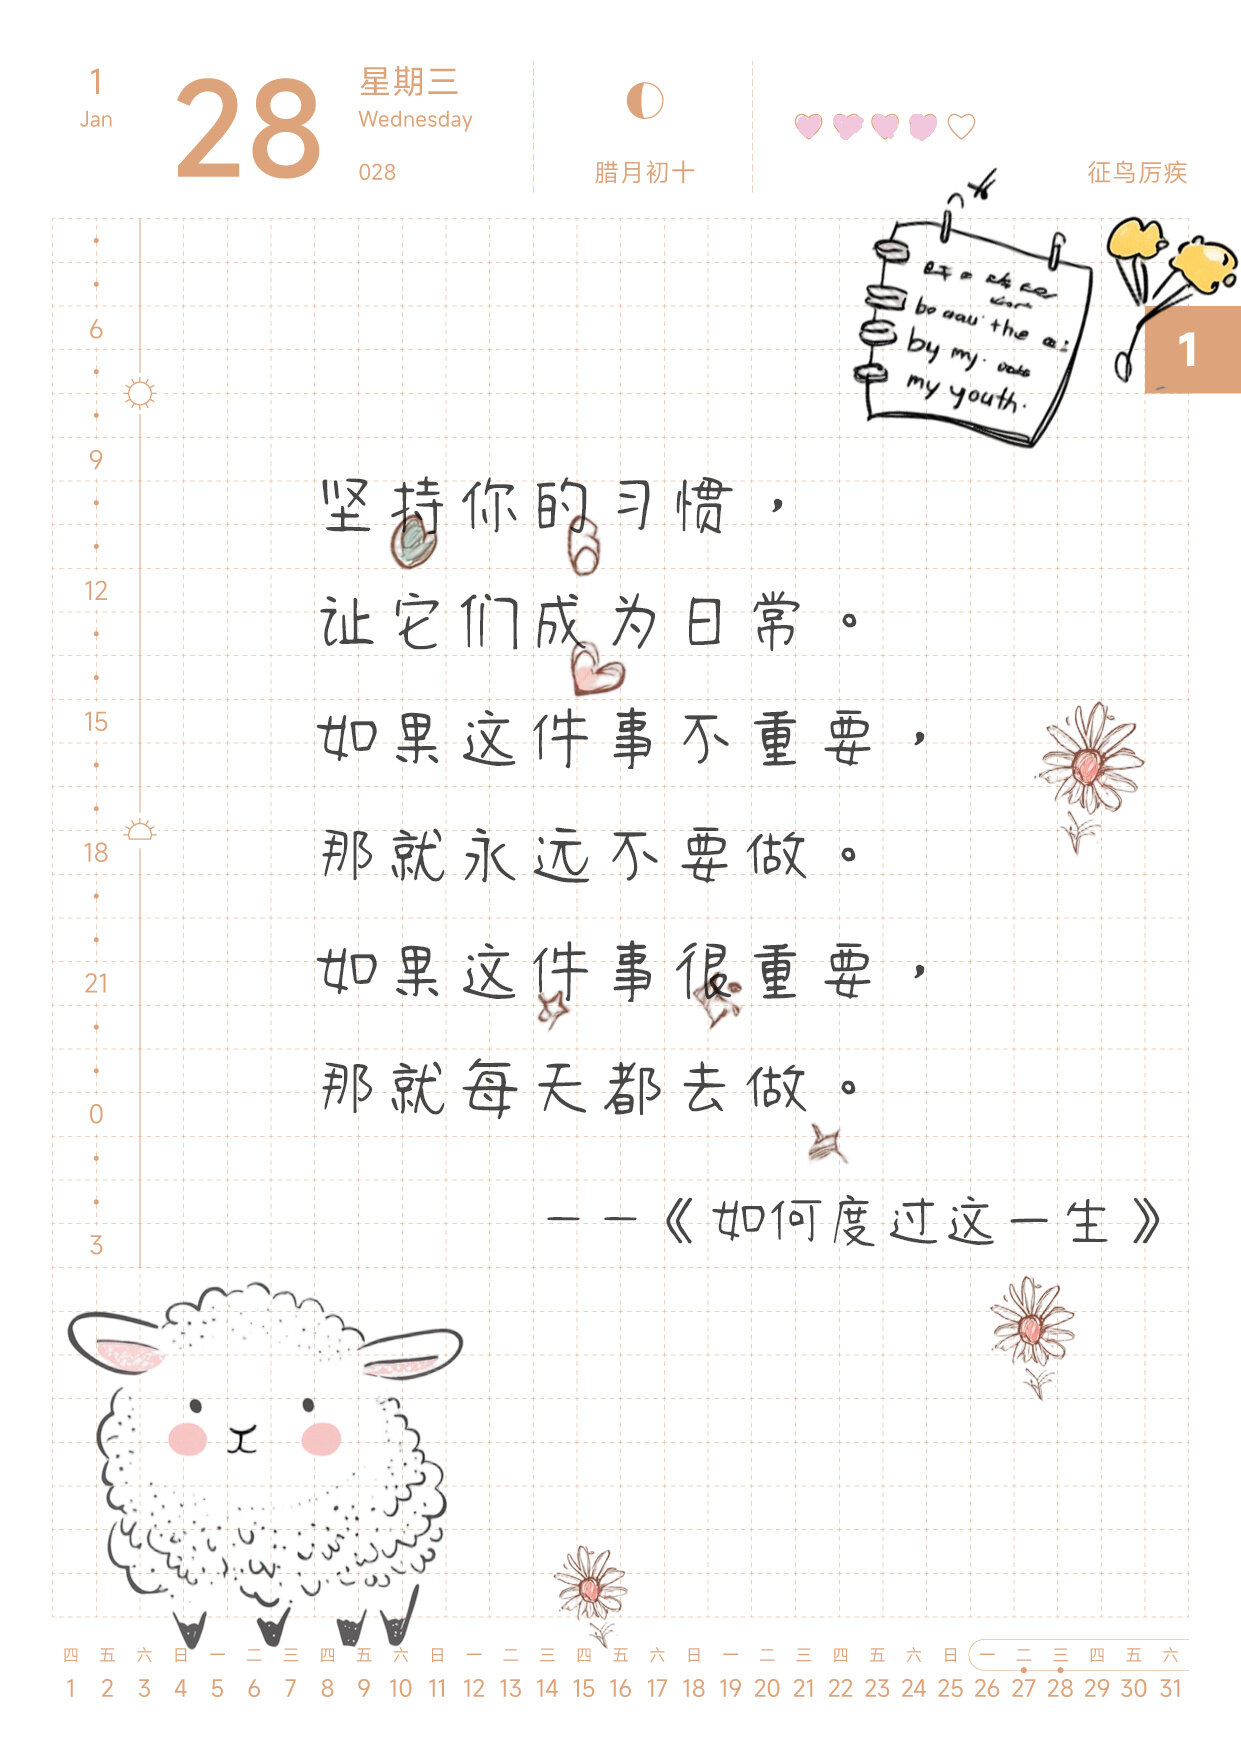 1
Jan
28
星期三
Wednesday
028
腊月初十
征鸟厉疾
1
by my
my youth.
6
9
12
15
18
21
0
3
坚持你的习惯，
让它们成为日常。
如果这件事不重要，
那就永远不要做。
如果这件事很重要，
那就每天都去做。
——《如何度过这一生》
四 五 六 日 一 二 三 四 五 六 日 一 二 三 四 五 六 日 一 二 三 四 五 六 日 一 二 三 四 五 六
1 2 3 4 5 6 7 8 9 10 11 12 13 14 15 16 17 18 19 20 21 22 23 24 25 26 27 28 29 30 31